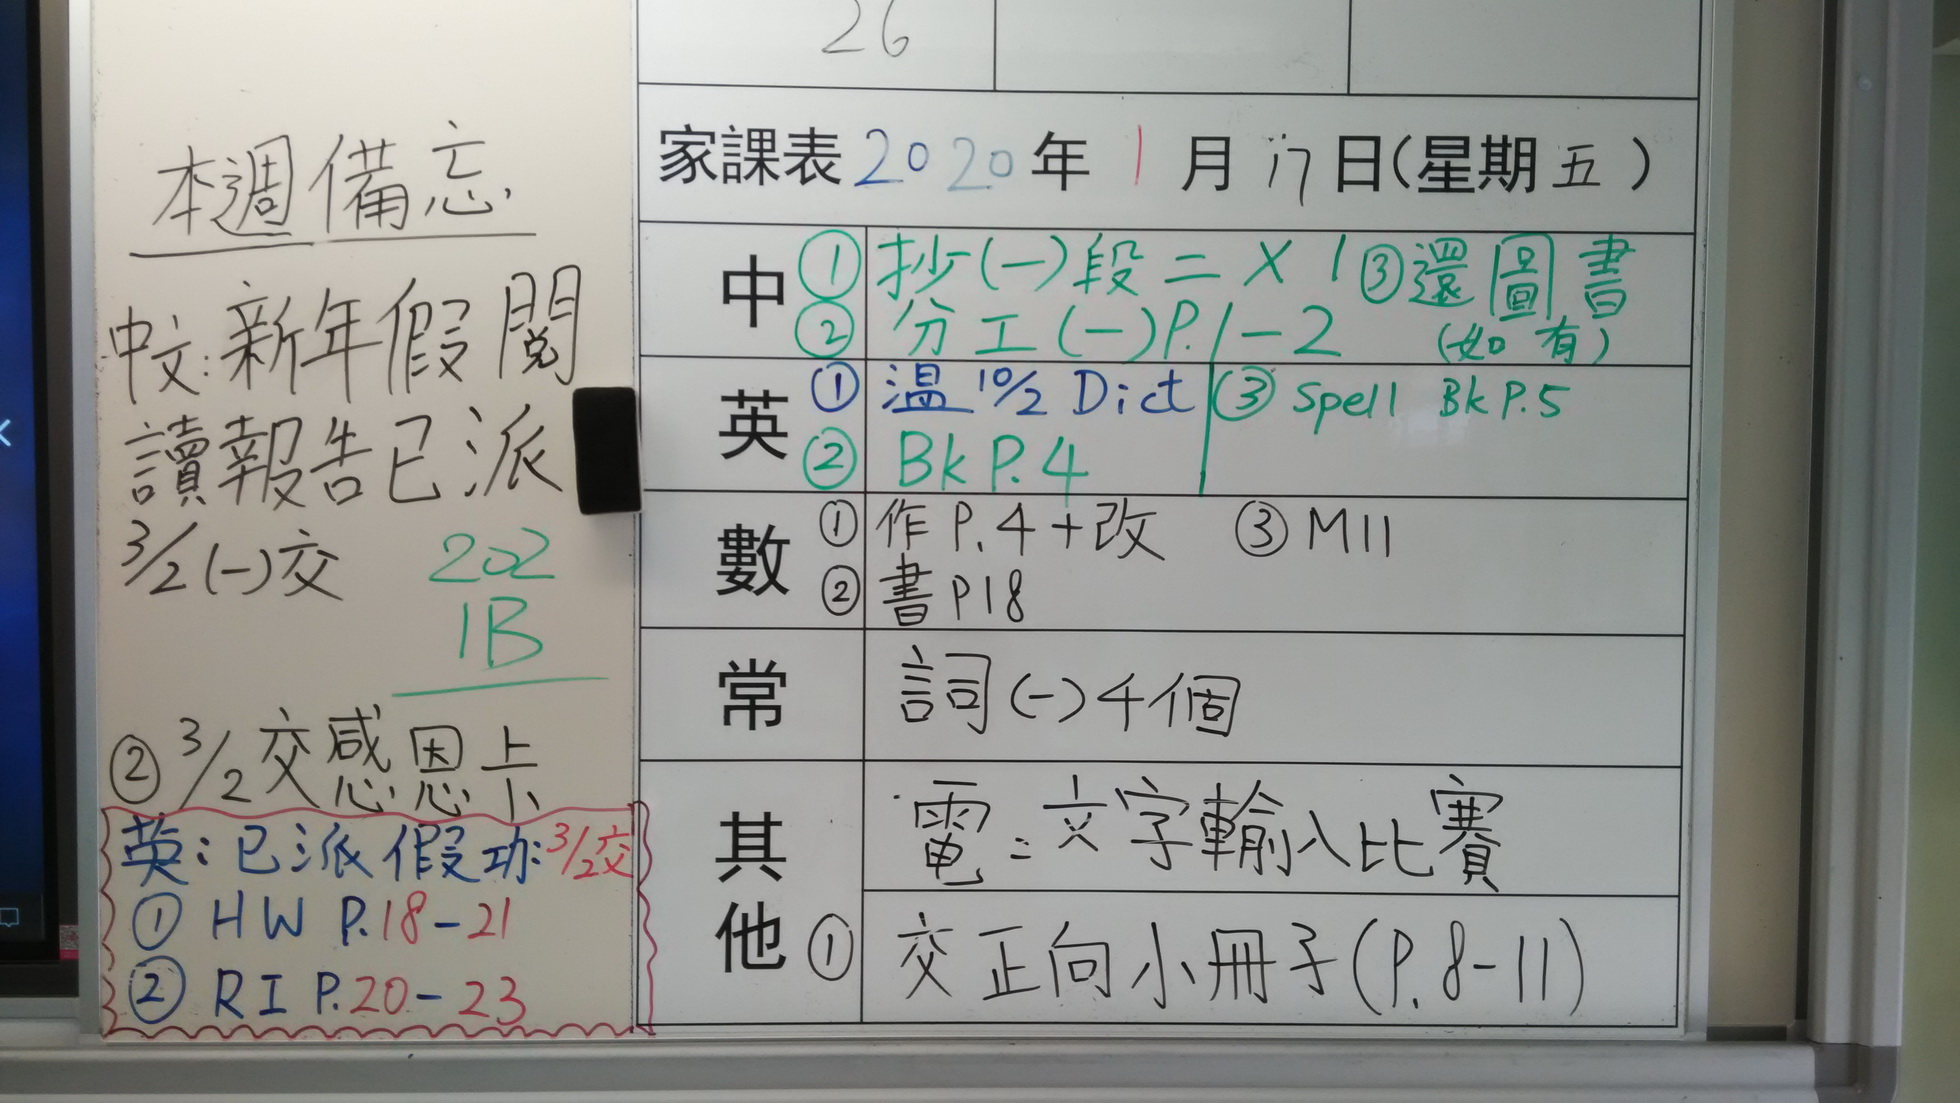 本週備忘
中文:新年假閱
讀報告已派
3/2(一)交
202
1B
② 3/2交感恩卡
英:已派假功:3/2交
① HW P.18-21
② RI P.20-23
26
家課表2020年1月17日(星期五)
中 ① 抄(一)段二×1 ③還圖書
② 分工(一)P.1-2 (如有)
英 ① 溫10/2 Dict ③ Spell Bk P.5
② Bk P.4
數 ① 作P.4+改 ③ M11
② 書P18
常 詞(一)4個
其他
電:文字輸入比賽
① 交正向小冊子(P.8-11)